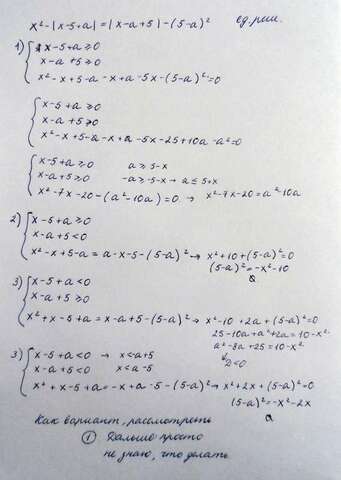 x² - |x-5+a| = |x-a+5| - (5-a)² ед. реш.
1) { x-5+a ≥ 0
x-a+5 ≥ 0
x² - x+5-a - x+a - 5x - (5-a)² = 0
{ x-5+a ≥ 0
x-a+5 ≥ 0
x² - x+5-a - x+a - 5x - 25+10a - a² = 0
{ x-5+a ≥ 0 a ≥ 5-x
x-a+5 ≥ 0 -a ≥ -5-x → a ≤ 5+x
x² - 7x - 20 - (a² - 10a) = 0 → x² - 7x - 20 = a² - 10a
2) { x-5+a ≥ 0
x-a+5 < 0
x² - x+5-a = a-x-5-(5-a)² → x² + 10 + (5-a)² = 0
(5-a)² = -x² - 10
3) { x-5+a < 0
x-a+5 ≥ 0
x² + x-5+a = x-a+5-(5-a)² → x² - 10 + 2a + (5-a)² = 0
25 - 10a + a² + 2a = 10 - x²
a² - 8a + 25 = 10 - x²
D < 0
3) { x-5+a < 0 → x < a+5
x-a+5 < 0 x < a-5
x² + x-5+a = -x+a-5-(5-a)² → x² + 2x + (5-a)² = 0
(5-a)² = -x² - 2x
Как вариант, рассмотреть
① Дальше просто
не знаю, что делать